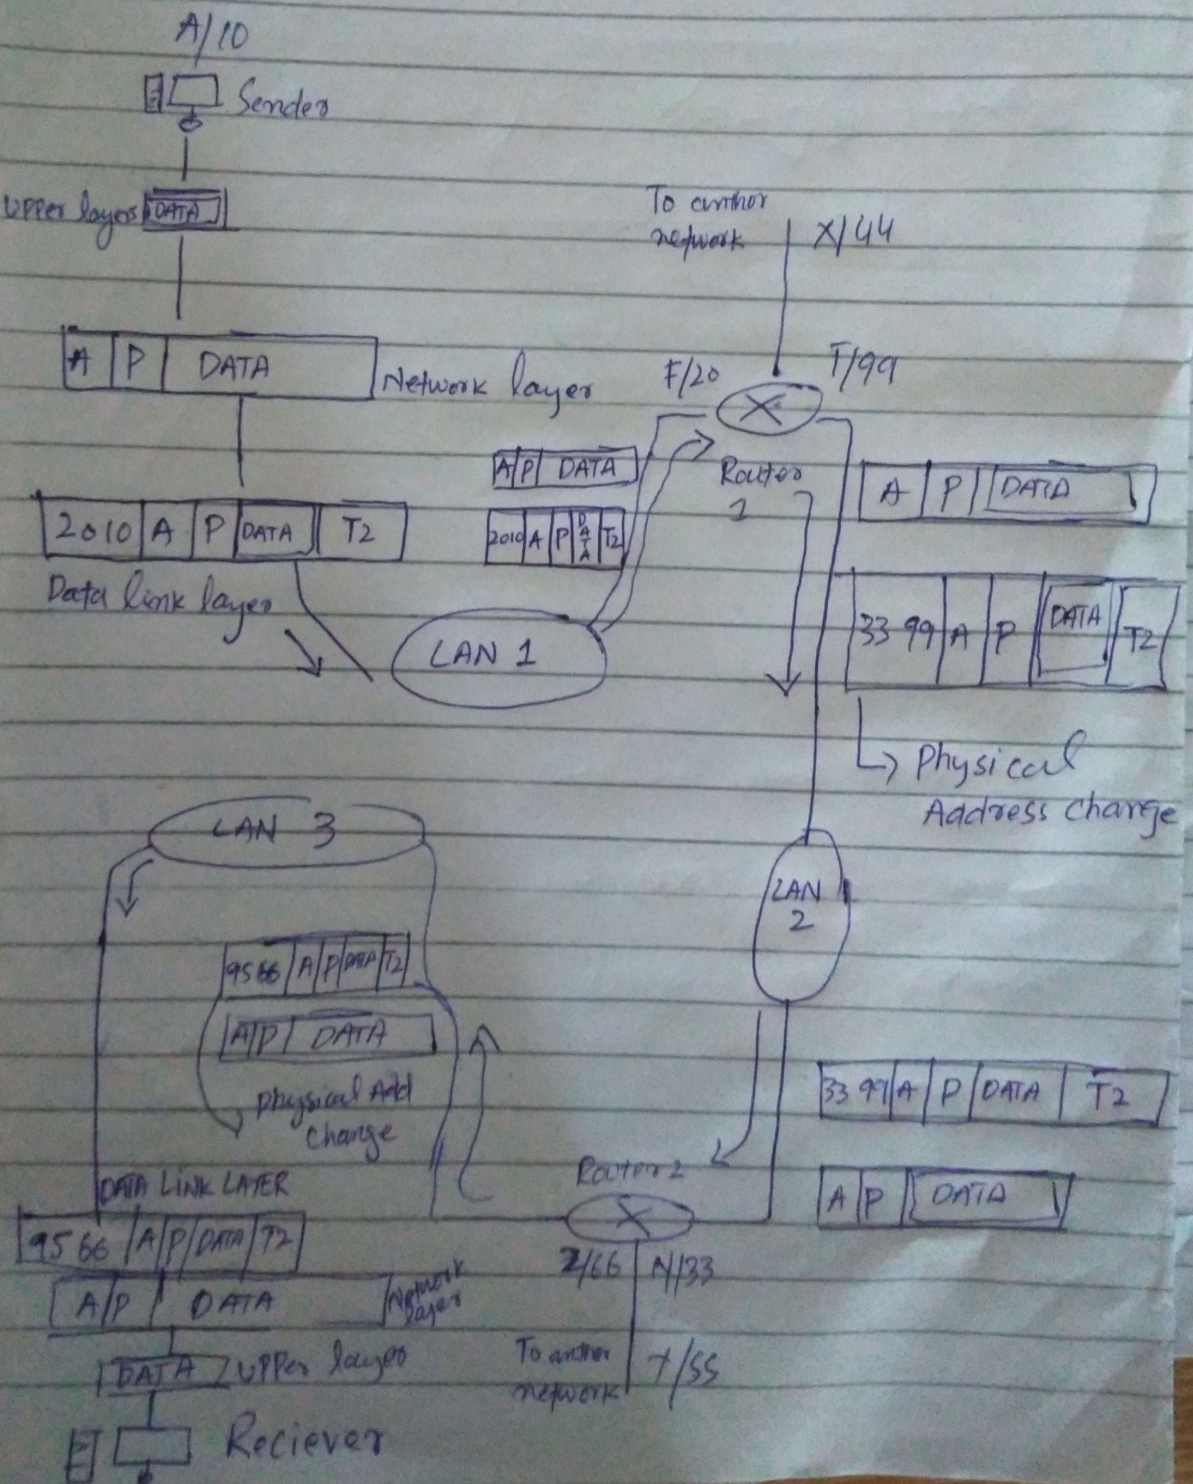 A/10
Sender
Upper layers DATA
A P DATA
Network layer
2010 A P DATA T2
Data link layer
LAN 1
A P DATA
2010 A P DATA T2
To anthor
network
X/44
F/20
T/99
Router
1
A P DATA
33 99 A P DATA T2
Physical
Address Change
LAN
2
33 99 A P DATA T2
A P DATA
Router 2
Z/66
N/33
To anthor
network
Y/55
LAN 3
95 66 A P DATA T2
A P DATA
Physical Add
Change
DATA LINK LAYER
95 66 A P DATA T2
A P DATA
Network
layer
DATA Upper layer
Reciever